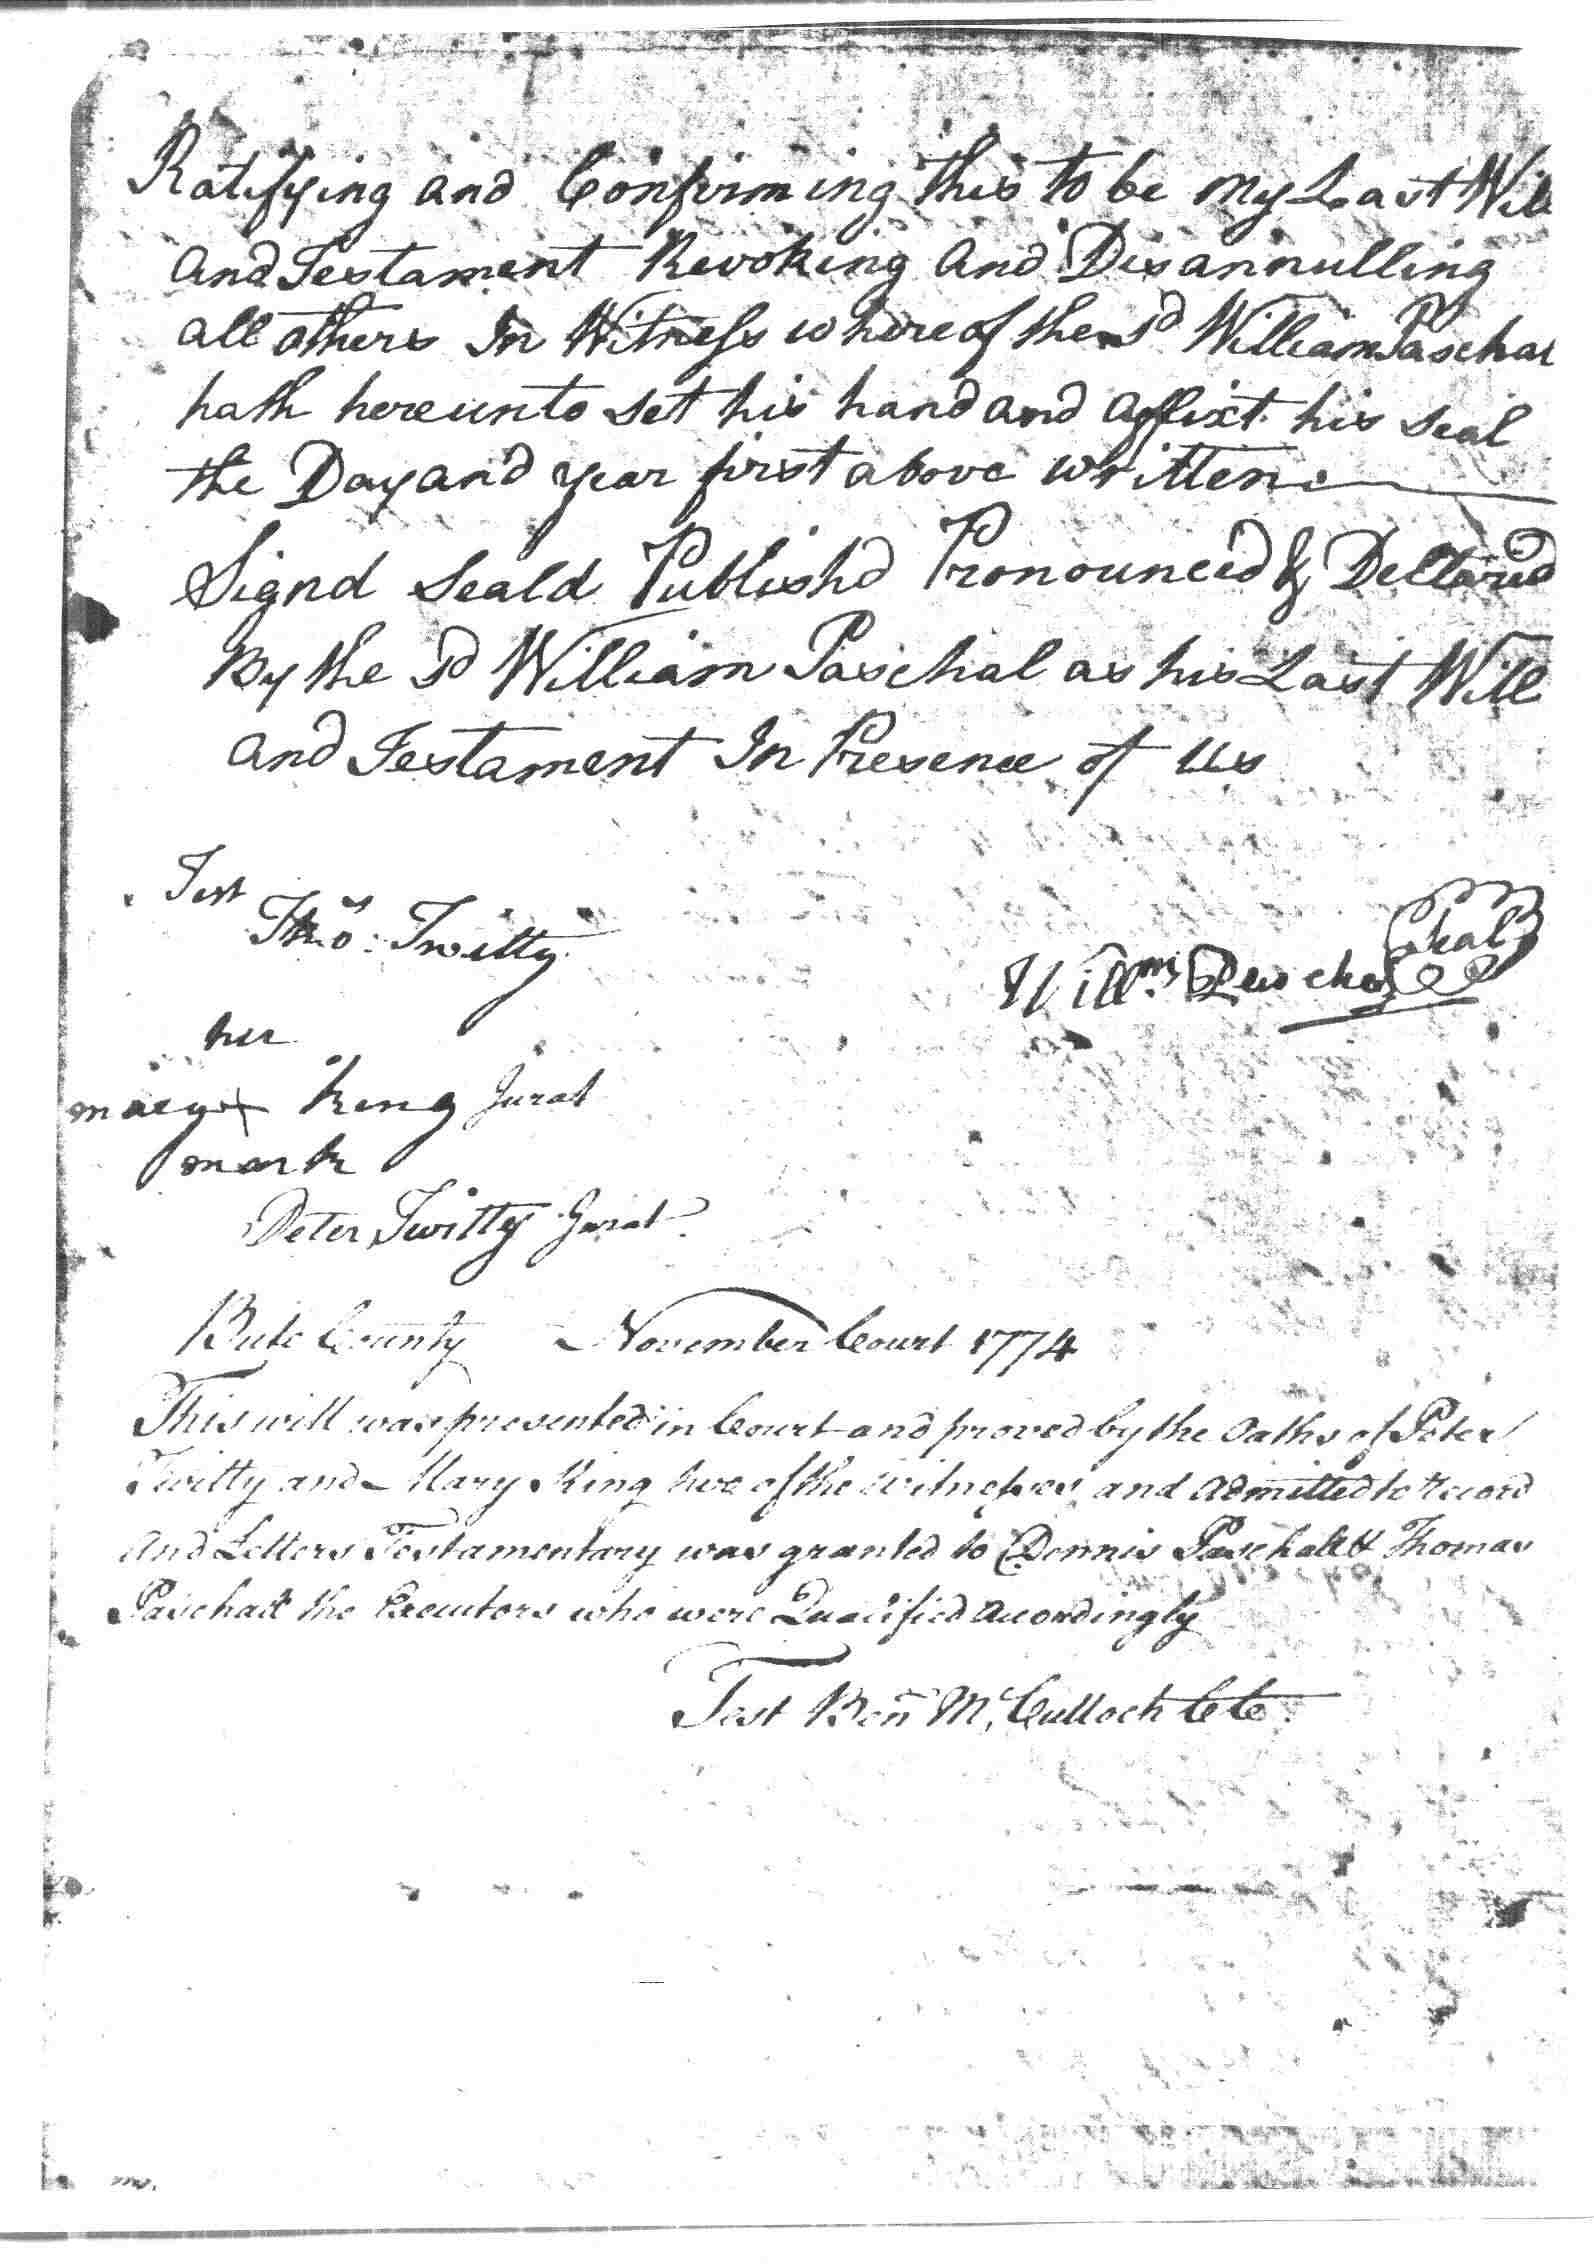 Ratifying and Confirming this to be my Last Will
and Testament Revoking and Disannulling
all others In Witness whereof the sd William Paschal
hath hereunto set his hand and affixt his seal
the Day and year first above written
Signd Seald Publishd Pronounced & Declared
By the sd William Paschal as his Last Will
and Testament In Presence of Us
Test
Thos: Twitty
Willm
Seal
her
mary + King Jurat
mark
Peter Twitty Jurat
Bute County November Court 1774
This will was presented in Court and proved by the Oaths of Peter
Twitty and Mary King two of the Witnesses and admitted to Record
And Letters Testamentary was granted to Dennis Paschall & Thomas
Paschall the Executors who were Qualified accordingly
Test Ben McCulloch CC